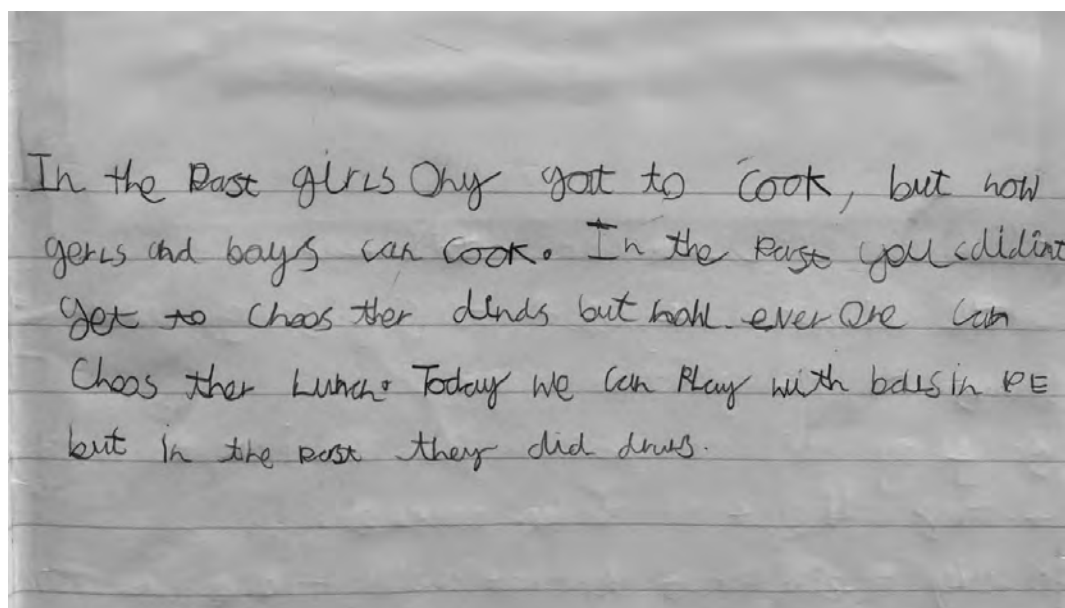 In the Past girls Ony got to cook, but now
gerls and boys can cook. In the Past you didint
get to choos ther but now ever one can
Choos ther Lunch. Today we can Play with in PE
but in the past they did